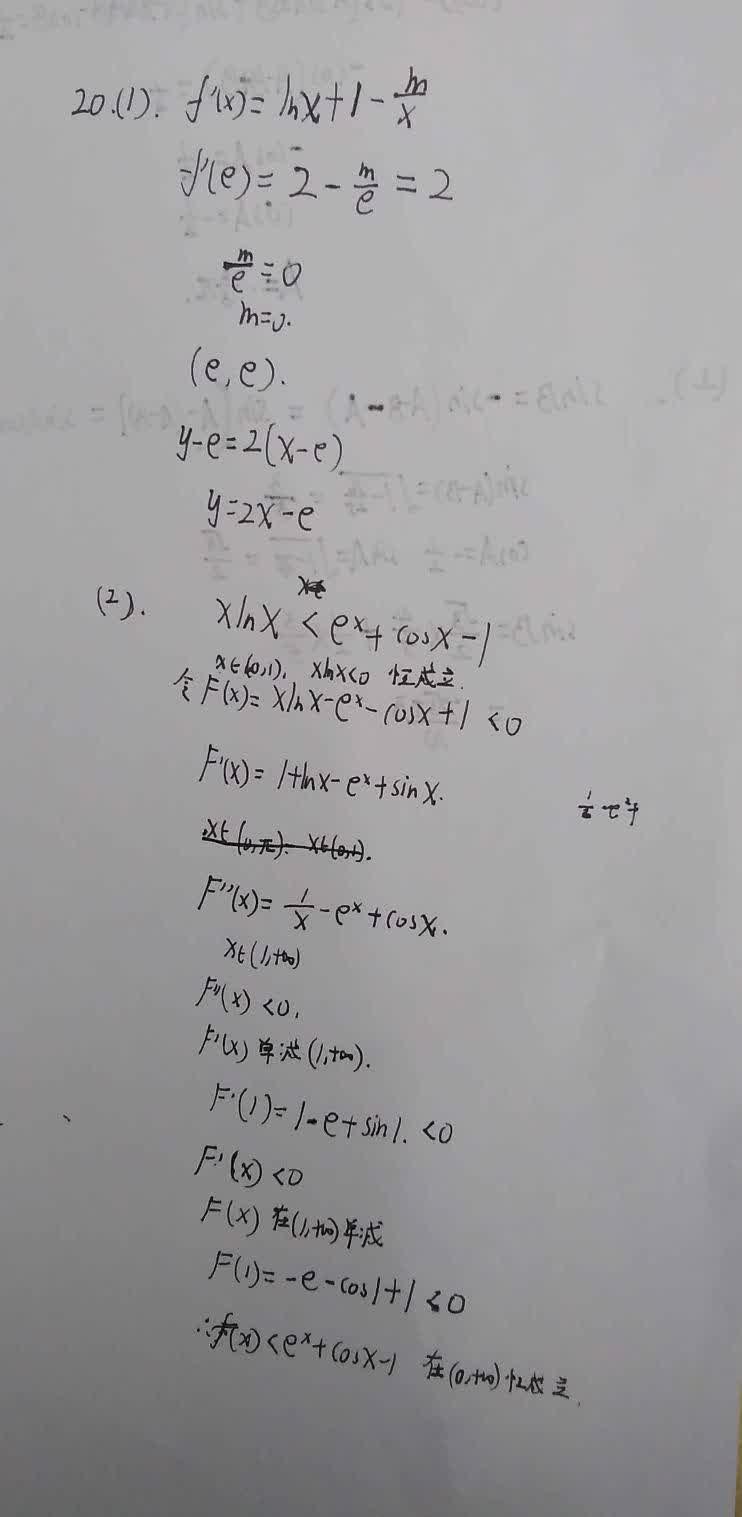 20.(1). f'(x)=lnx+1-m/x
f'(e)=2-m/e=2
m/e=0
m=0.
(e,e).
y-e=2(x-e)
y=2x-e
(2). xlnx<e^x+cosx-1
x∈(0,1), xlnx<0 恒成立.
令F(x)=xlnx-e^x-cosx+1<0
F'(x)=1+lnx-e^x+sinx.
x∈(0,π). x∈(0,1).
F''(x)=1/x-e^x+cosx.
x∈(1,+∞)
F''(x)<0,
F'(x)单减(1,+∞).
F'(1)=1-e+sin1.<0
F'(x)<0
F(x)在(1,+∞)单减
F(1)=-e-cos1+1<0
∴f(x)<e^x+cosx-1 在(0,+∞)恒成立.